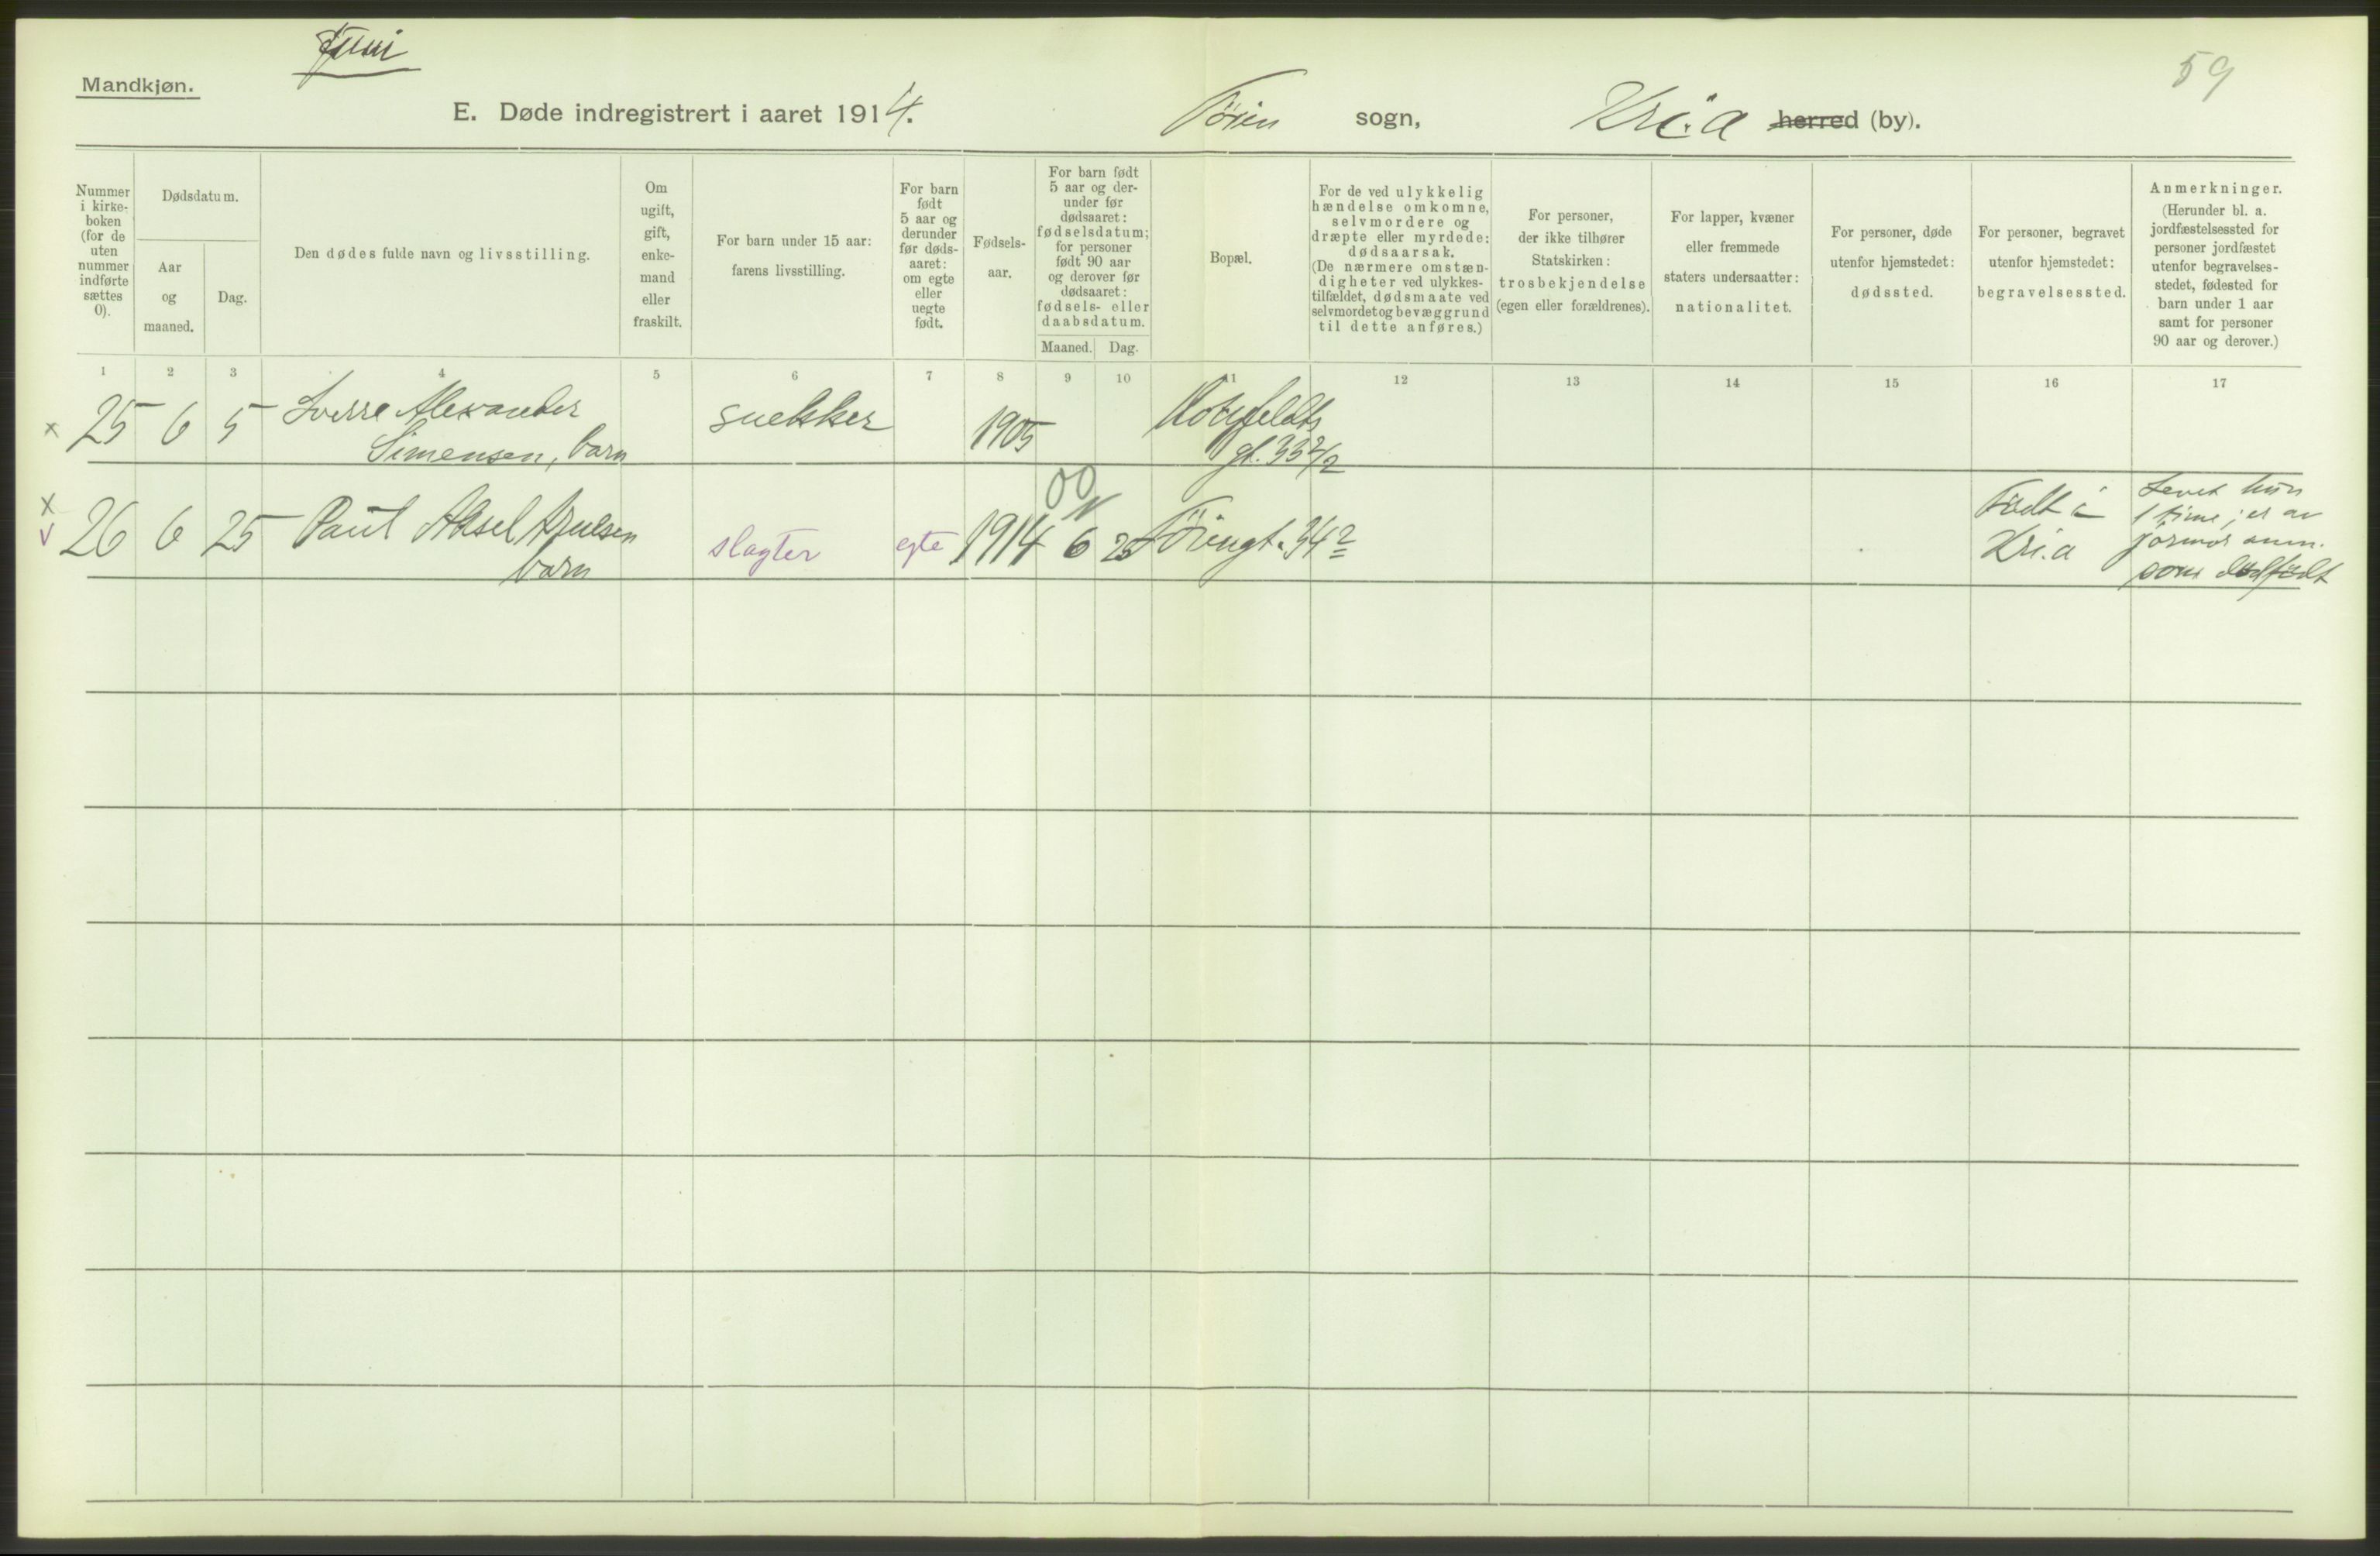 Juni
59
Mandkjøn.
E. Døde indregistrert i aaret 1914.
Tøien sogn, Kri.a herred (by).
Nummer
i kirke-
boken
(for de
uten
nummer
indførte
sættes
0).
Dødsdatum.
Aar
og
maaned.
Dag.
Den dødes fulde navn og livsstilling.
Om
ugift,
gift,
enke-
mand
eller
fraskilt.
For barn under 15 aar:
farens livsstilling.
For barn
født
5 aar og
derunder
før døds-
aaret:
om egte
eller
uegte
født.
Fødsels-
aar.
For barn født
5 aar og der-
under før
dødsaaret:
fødselsdatum;
for personer
født 90 aar
og derover før
dødsaaret:
fødsels- eller
daabsdatum.
Maaned. Dag.
Bopæl.
For de ved ulykkelig
hændelse omkomne,
selvmordere og
dræpte eller myrdede:
dødsaarsak.
(De nærmere omstæn-
digheter ved ulykkes-
tilfældet, dødsmaate ved
selvmordet og bevæggrund
til dette anføres.)
For personer,
der ikke tilhører
Statskirken:
trosbekjendelse
(egen eller forældrenes).
For lapper, kvæner
eller fremmede
staters undersaatter:
nationalitet.
For personer, døde
utenfor hjemstedet:
dødssted.
For personer, begravet
utenfor hjemstedet:
begravelsessted.
Anmerkninger.
(Herunder bl. a.
jordfæstelsessted for
personer jordfæstet
utenfor begravelses-
stedet, fødested for
barn under 1 aar
samt for personer
90 aar og derover.)
1 2 3 4 5 6 7 8 9 10 11 12 13 14 15 16 17
x 25 6 5 Sverre Alexander snekker 1905
Simensen, barn gt. 33 2/2
00
x v 26 6 25 Paul Aksel slagter egte 1914 6 25 Töiengt. 34 2
barn
Födt i
Kri.a
Levet kun
1 time; er av
jormor anm.
som dødfødt